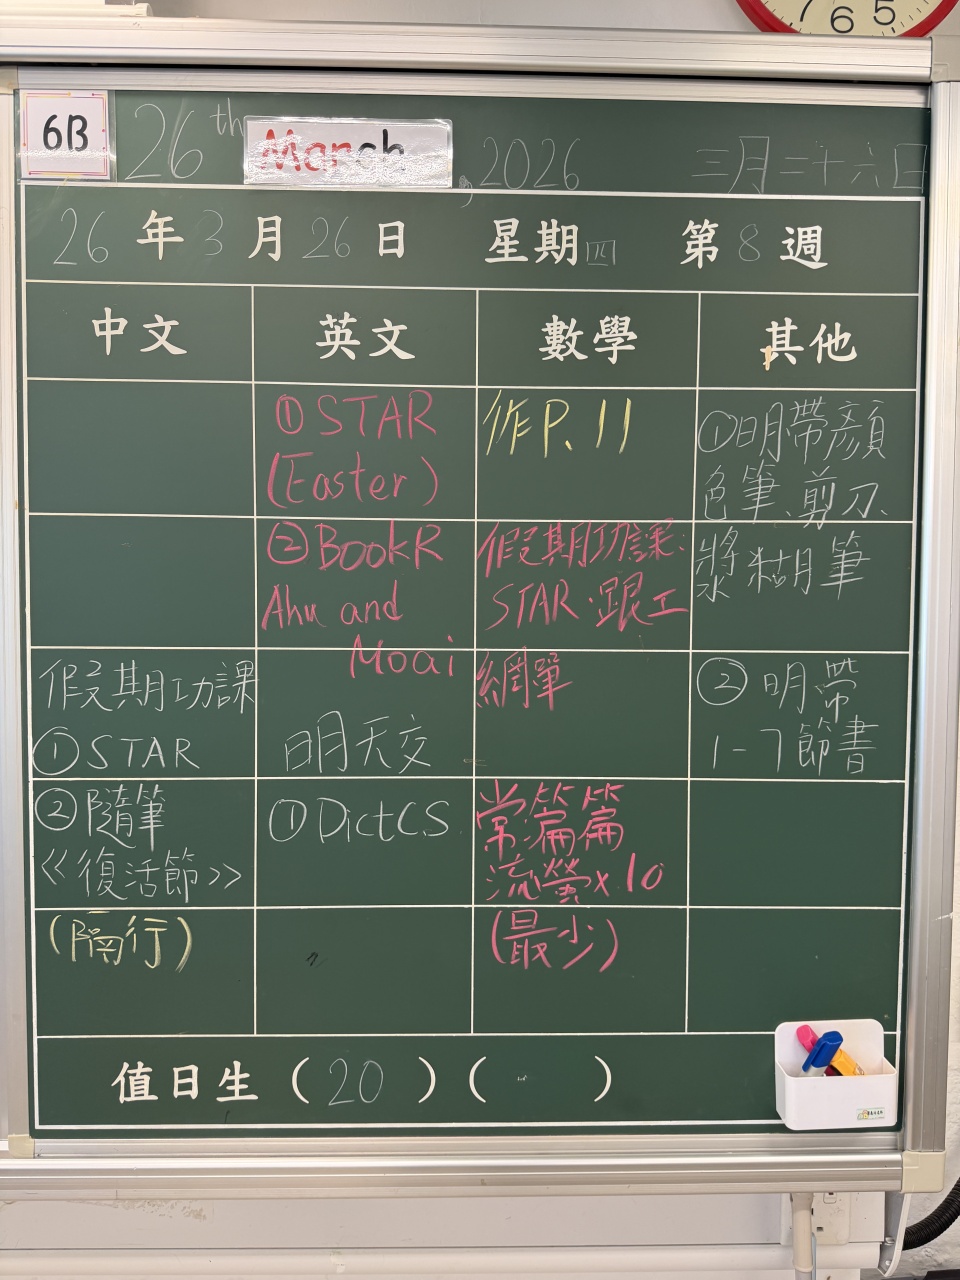 7 6 5
6B
26th March, 2026 三月二十六日
26年3月26日 星期四 第8週
中文 英文 數學 其他
假期功課
①STAR
②隨筆
《復活節》
(隔行)
①STAR
(Easter)
②BookR
Ahu and
Moai
明天交
①DictCS
作P.11
假期功課:
STAR、跟工
網單
常溫篇篇
流螢x10
(最少)
①明帶顏
色筆、剪刀、
漿糊筆
②明帶
1-7節書
值日生(20)( )